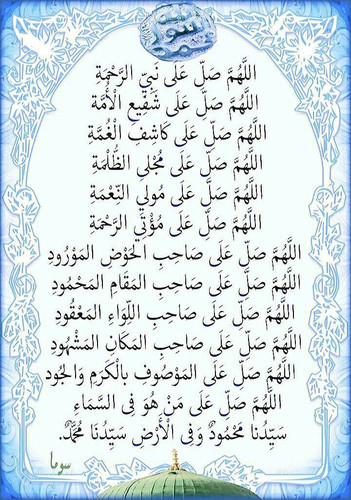 اللَّهُمَّ صَلِّ عَلَى نَبِيِّ الرَّحْمَةِ
اللَّهُمَّ صَلِّ عَلَى شَفِيعِ الْأُمَّة
اللَّهُمَّ صَلِّ عَلَى كَاشِفِ الْغُمَّةِ
اللَّهُمَّ صَلِّ عَلَى مُجْلِي الظُّلْمَةِ
اللَّهُمَّ صَلِّ عَلَى مُولِي النِّعْمَةِ
اللَّهُمَّ صَلِّ عَلَى مُؤْتِي الرَّحْمَةِ
اللَّهُمَّ صَلِّ عَلَى صَاحِبِ الحَوْضِ المَوْرُودِ
اللَّهُمَّ صَلِّ عَلَى صَاحِبِ المَقَامِ المَحْمُودِ
اللَّهُمَّ صَلِّ عَلَى صَاحِبِ اللِّوَاءِ المَعْقُودِ
اللَّهُمَّ صَلِّ عَلَى صَاحِبِ المَكَانِ المَشْهُودِ
اللَّهُمَّ صَلِّ عَلَى المَوْصُوفِ بِالْكَرَمِ وَالجُودِ
اللَّهُمَّ صَلِّ عَلَى مَنْ هُوَ فِى السَّمَاءِ
سَيِّدُنَا مَحْمُودٌ وَفِى الْأَرْضِ سَيِّدُنَا مُحَمَّدٌ.
سوما